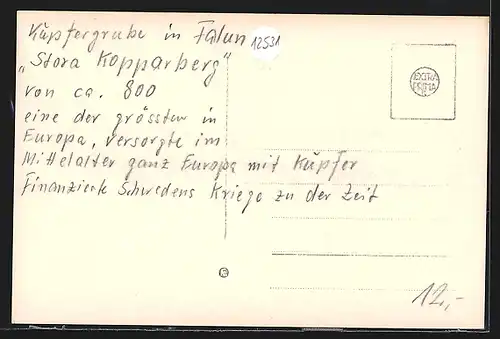 Kupfergrube in Falun
12531
"Stora Kopparberg"
von ca. 800
eine der grössten in
Europa, versorgte im
Mittelalter ganz Europa mit Kupfer
Finanzierte Schwedens Kriege zu der Zeit
EXTRA
PRIMA
12,-